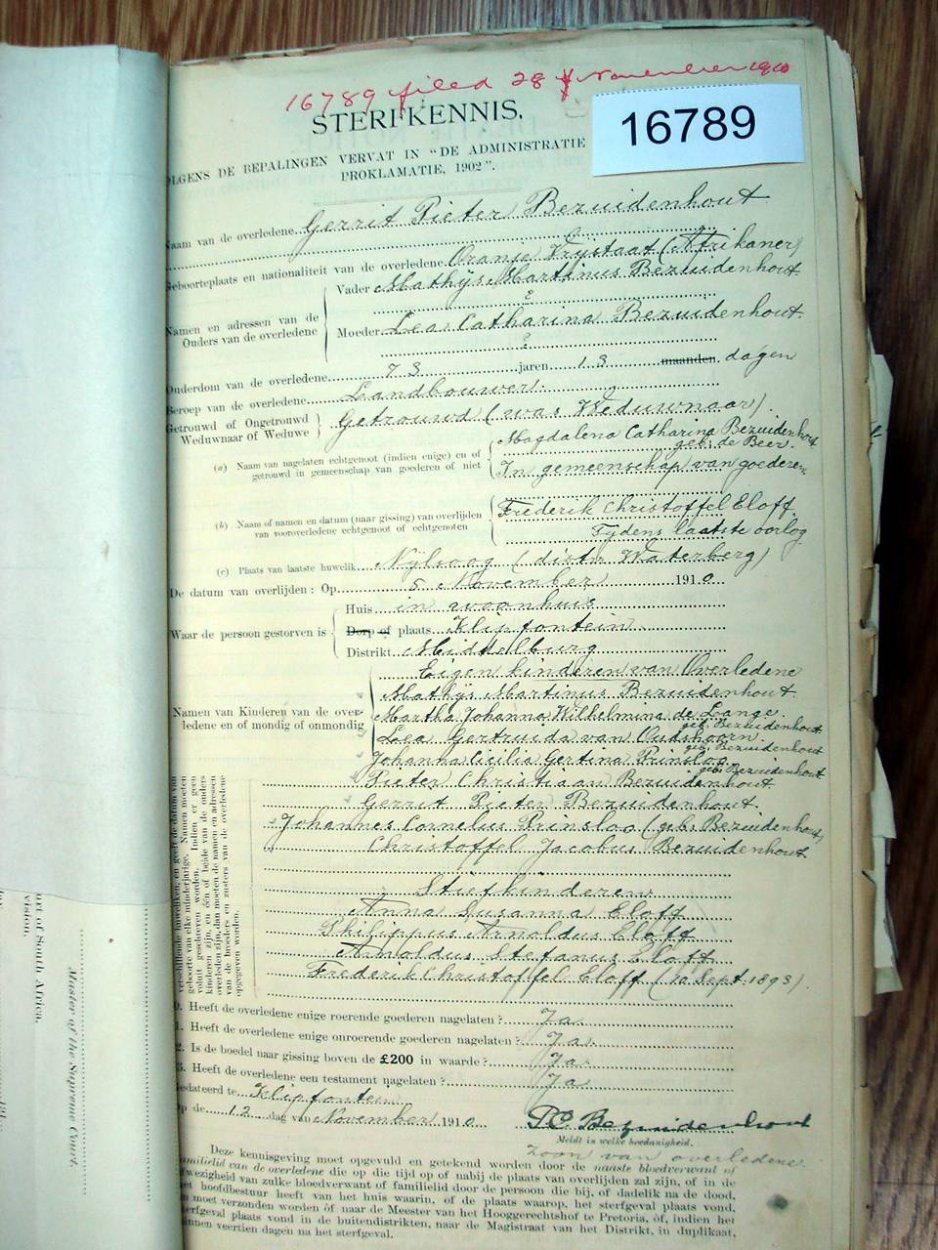 16789 filed 28 November 1910
16789
STERFKENNIS.
OLGENS DE BEPALINGEN VERVAT IN "DE ADMINISTRATIE
PROKLAMATIE, 1902".
Naam van de overledene Gerrit Pieter Bezuidenhout
Geboorteplaats en nationaliteit van de overledene Oranje Vrijstaat (Afrikaner)
Namen en adressen van de Ouders van de overledene
Vader Mathijs Martinus Bezuidenhout
?
Moeder Lea Catharina Bezuidenhout
?
Onderdom van de overledene 73 jaren 13 maanden dagen
Beroep van de overledene Landbouwer
Getrouwd of Ongetrouwd Weduwnaar of Weduwe } Getrouwd (was Weduwnaar)
(a) Naam van nagelaten echtgenoot (indien enige) en of getrouwd in gemeenschap van goederen of niet
Magdalena Catharina Bezuidenhout
geb. de Beer
In gemeenschap van goederen
(b) Naam of namen en datum (naar gissing) van overlijden van vooroverledene echtgenoot of echtgenoten
Frederik Christoffel Eloff
Tijdens laatste oorlog
(c) Plaats van laatste huwelik Nijlsoog (distr. Waterberg)
De datum van overlijden: Op 5 November 1910
Waar de persoon gestorven is
Huis in woonhuis
Dorp of plaats Klipfontein
Distrikt Middelburg
Namen van Kinderen van de overledene en of mondig of onmondig
Eigen kinderen van Overledene
Mathijs Martinus Bezuidenhout
Martha Johanna Wilhelmina de Lange
geb. Bezuidenhout
Lea Gertruida van Oudshoorn
geb. Bezuidenhout
Johanna Cicilia Gertina Prinsloo
geb. Bezuidenhout
Pieter Christiaan Bezuidenhout
Gerrit Pieter Bezuidenhout
Johannes Cornelus Prinsloo (geb. Bezuidenhout)
Christoffel Jacobus Bezuidenhout
Stiefkinderen
Anna Susanna Eloff
Philippus Arnoldus Eloff
Arnoldus Stefanus Eloff
Frederik Christoffel Eloff (10 Sept. 1893)
geboorte van elke minderjarige. Namen moeten
voluit geschreven worden. Indien er geen
kinderen zijn, en één of beide van de ouders
overleden zijn, dan moeten de namen en adressen
van de broeders en zusters van de overledene
opgegeven worden.
. Heeft de overledene enige roerende goederen nagelaten? Ja
1. Heeft de overledene enige onroerende goederen nagelaten? Ja
2. Is de boedel naar gissing boven de £200 in waarde? Ja
3. Heeft de overledene een testament nagelaten? Ja
Gedateerd te Klipfontein
Op de 12 dag van November 1910
PC Bezuidenhout
Meldt in welke hoedanigheid.
Zoon van overledene
Deze kennisgeving moet opgevuld en getekend worden door de naaste bloedverwant of
familielid van de overledene die op die tijd op of nabij de plaats van overlijden zal zijn, of in de
wezigheid van zulke bloedverwant of familielid door de persoon die bij, of dadelik na de dood,
et hoofdbestuur heeft van het huis waarin, of de plaats waarop, het sterfgeval plaats vond,
n moet verzonden worden óf naar de Meester van het Hooggerechtshof te Pretoria, óf, indien het
terfgeval plaats vond in de buitendistrikten, naar de Magistraat van het Distrikt, in duplikaat,
innen veertien dagen na het sterfgeval.
art of South Africa,
vision.
Master of the Supreme Court.